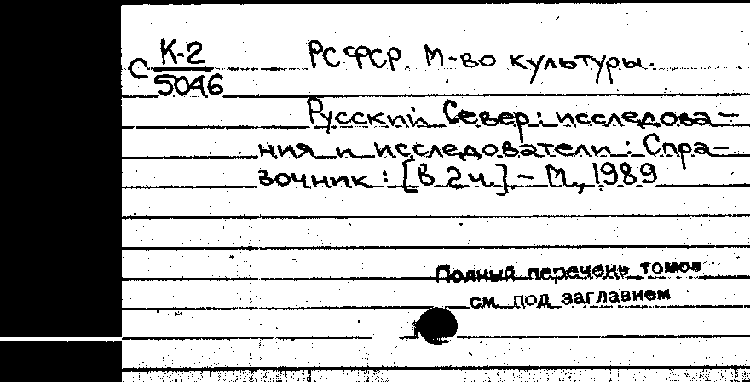 С К-2
5046
РСФСР. М-во культуры.
Русский Север: исследова-
ния и исследователи: Спра-
вочник: [В 2 ч.]. - М., 1989
Полный перечень томов
см. под заглавием